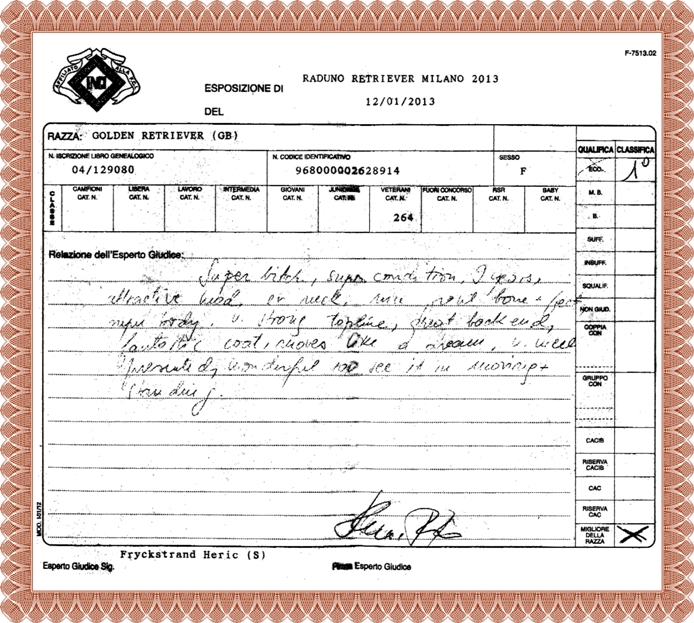 F-7513.02
AFFILIATO ALLA F.C.I.
ENCI
ESPOSIZIONE DI RADUNO RETRIEVER MILANO 2013
DEL 12/01/2013
RAZZA: GOLDEN RETRIEVER (GB)
QUALIFICA CLASSIFICA
N. ISCRIZIONE LIBRO GENEALOGICO N. CODICE IDENTIFICATIVO SESSO
04/129080 968000002628914 F
ECC. 1°
CLASSE
CAMPIONI CAT. N. LIBERA CAT. N. LAVORO CAT. N. INTERMEDIA CAT. N. GIOVANI CAT. N. VETERANI CAT. N. FUORI CONCORSO CAT. N. RSR CAT. N. BABY CAT. N.
264
M. B.
B.
SUFF.
INSUFF.
SQUALIF.
NON GIUD.
COPPIA CON
GRUPPO CON
CACIB
RISERVA CACIB
CAC
RISERVA CAC
MIGLIORE DELLA RAZZA X
Relazione dell'Esperto Giudice:
Super bitch, super condition, 9 years,
attractive head, neck, nice front bone + feet
super body, v. strong topline, great back end,
fantastic coat, moves like a dream, v. well
presented, wonderful too see it in moving +
standing.
MOD. 101/12
Fryckstrand Heric (S)
Esperto Giudice Sig. Esperto Giudice